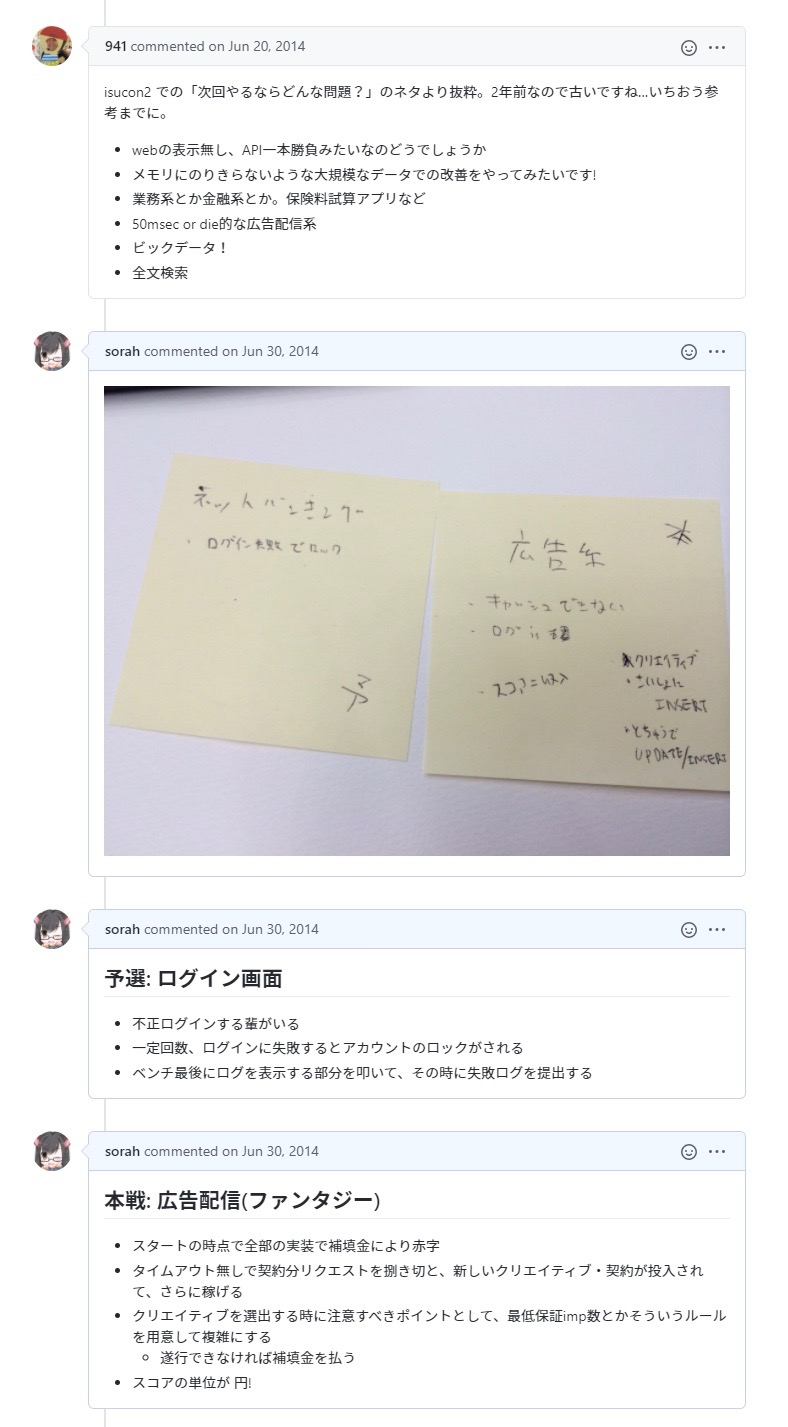 941 commented on Jun 20, 2014
isucon2 での「次回やるならどんな問題？」のネタより抜粋。2年前なので古いですね...いちおう参
考までに。
webの表示無し、API一本勝負みたいなのどうでしょうか
メモリにのりきらないような大規模なデータでの改善をやってみたいです!
業務系とか金融系とか。保険料試算アプリなど
50msec or die的な広告配信系
ビックデータ！
全文検索
sorah commented on Jun 30, 2014
ネットバンキング
・ログイン失敗でロック
予
本
広告系
・キャッシュできない
・ログ
・スコア=収入
クリエイティブ
・さいしょに
INSERT
・とちゅうで
UPDATE/INSERT
sorah commented on Jun 30, 2014
予選: ログイン画面
不正ログインする輩がいる
一定回数、ログインに失敗するとアカウントのロックがされる
ベンチ最後にログを表示する部分を叩いて、その時に失敗ログを提出する
sorah commented on Jun 30, 2014
本戦: 広告配信(ファンタジー)
スタートの時点で全部の実装で補填金により赤字
タイムアウト無しで契約分リクエストを捌き切と、新しいクリエイティブ・契約が投入され
て、さらに稼げる
クリエイティブを選出する時に注意すべきポイントとして、最低保証imp数とかそういうルール
を用意して複雑にする
遂行できなければ補填金を払う
スコアの単位が 円!